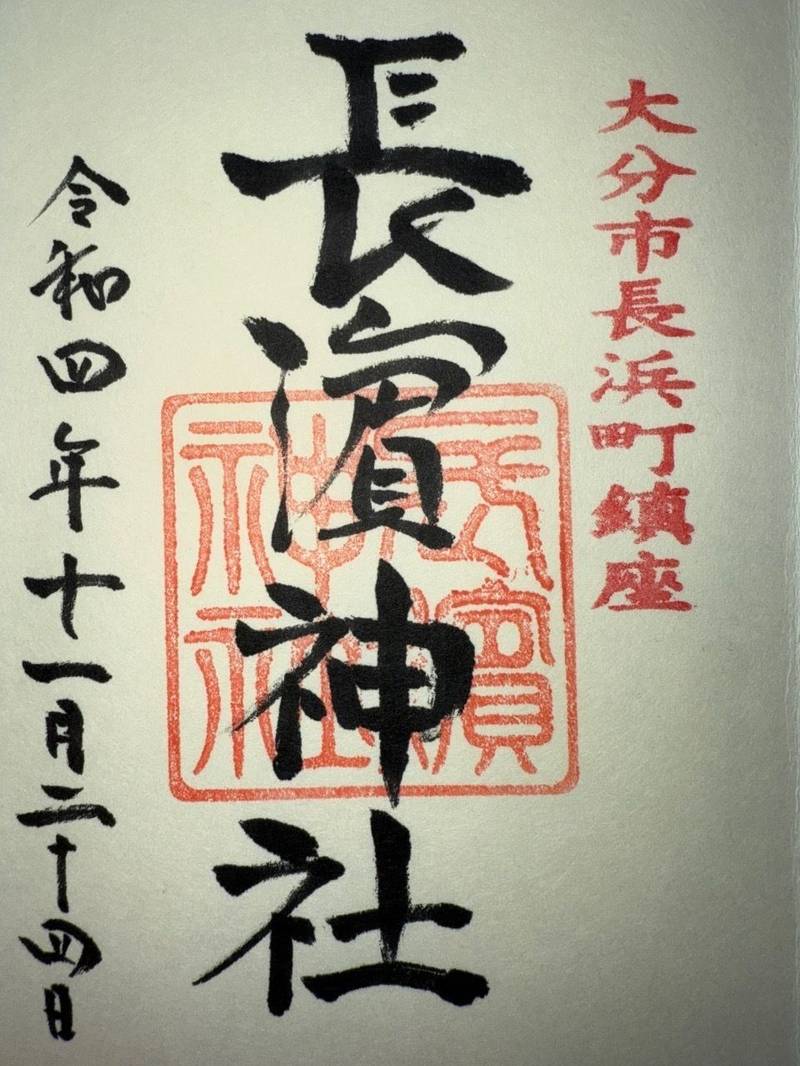 大分市長浜町鎮座
長濵神社
長濱神社
令和四年十一月二十四日